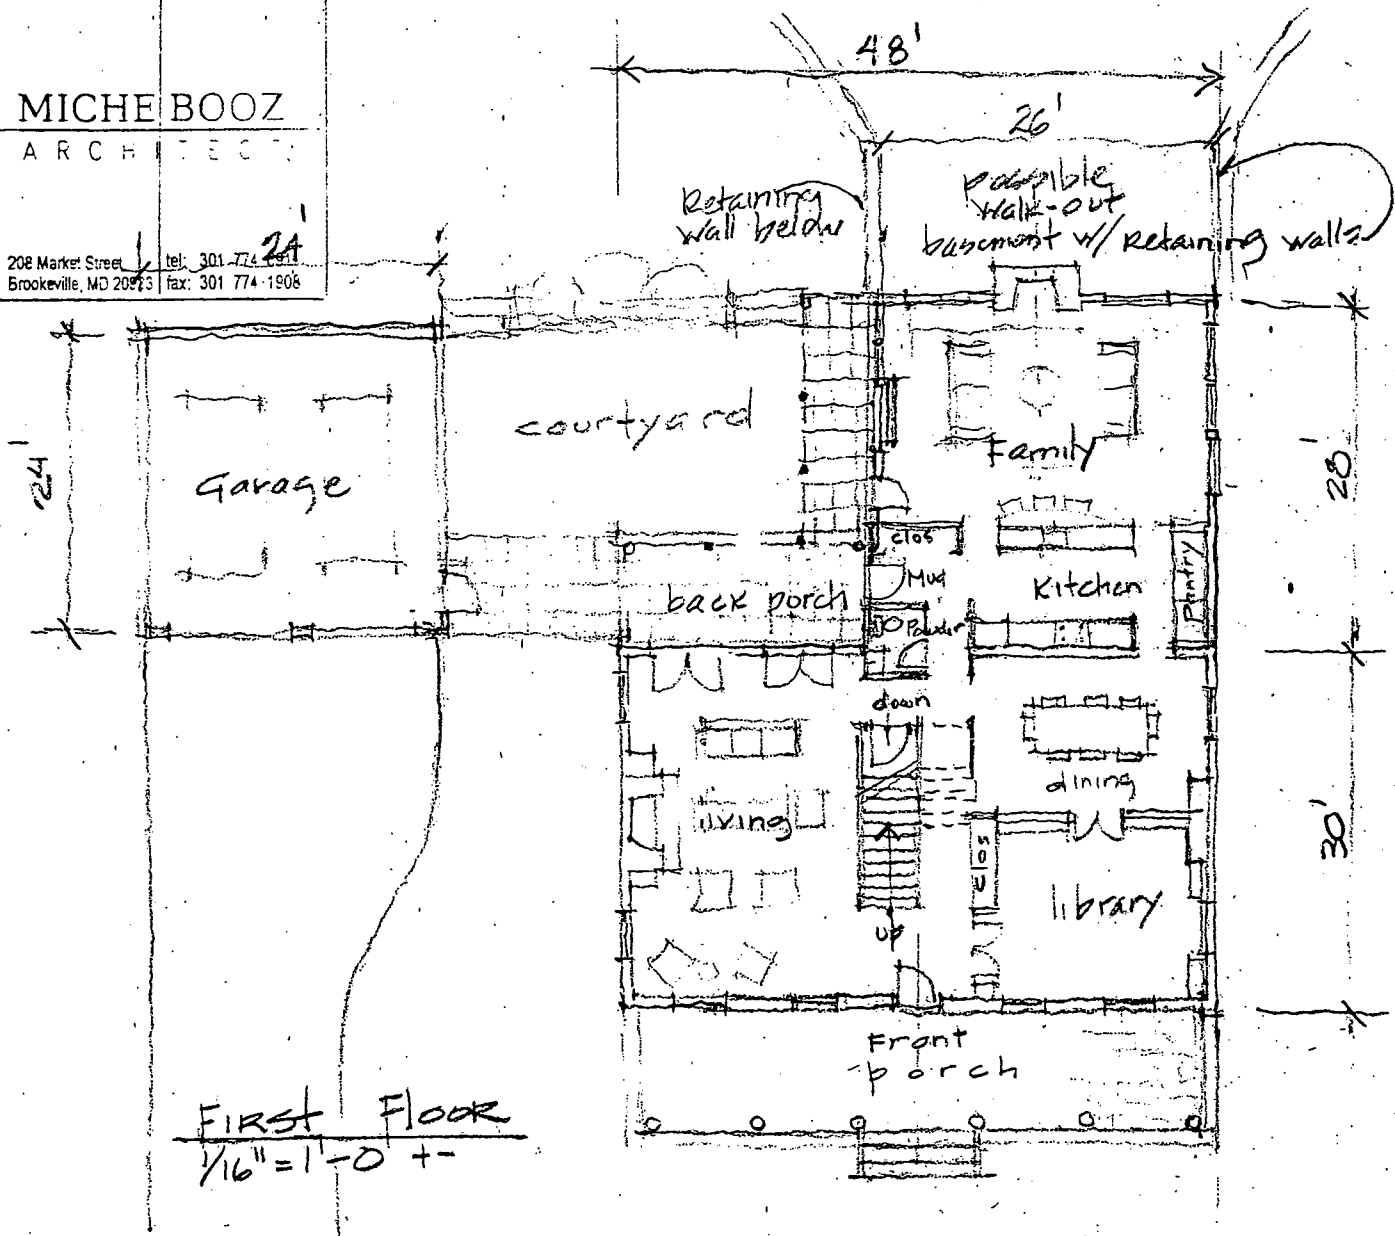 MICHE BOOZ
ARCHITECT
208 Market Street
Brookeville, MD 20833
tel: 301 774
fax: 301 774-1908
24'
48'
26'
Retaining
wall below
possible
walk-out
basement w/ Retaining walls
24'
Garage
courtyard
Family
28'
clos
Mud
Kitchen
Pantry
back porch
Powder
down
dining
living
clos
library
30'
up
Front
porch
First Floor
1/16" = 1'-0" +-